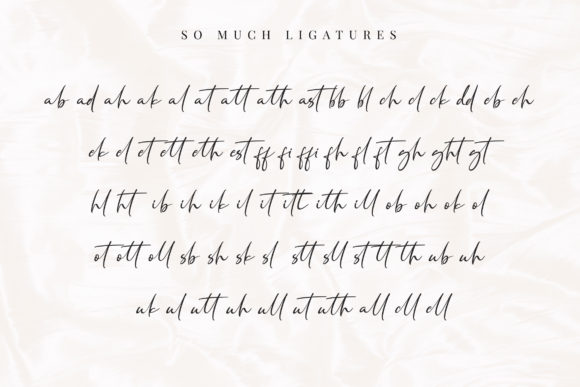 SO MUCH LIGATURES
ab ad ah ak al at att ath ast bb bl ch cl ck dd eb eh
ek el et ett eth est ff fi ffi fh fl ft gh ght gt
hl ht ib ih ik il it itt ith ill ob oh ok ol
ot ott oll sb sh sk sl stt sll st tt th ub uh
uk ul utt uh ull ut uth all ell ell